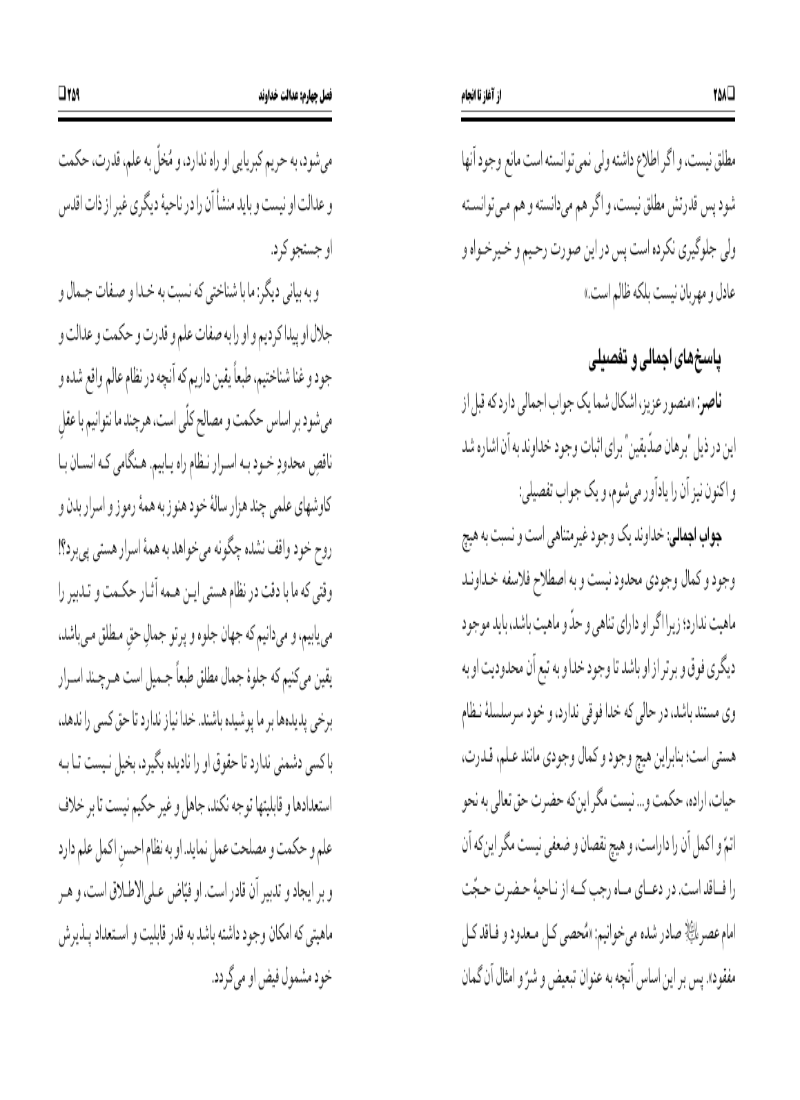 ❏ ۲۵۸
از آغاز تا انجام
مطلق نیست، و اگر اطلاع داشته ولی نمی‌توانسته است مانع وجود آنها
شود پس قدرتش مطلق نیست، و اگر هم می‌دانسته و هم می‌توانسته
ولی جلوگیری نکرده است پس در این صورت رحیم و خیرخواه و
عادل و مهربان نیست بلکه ظالم است.»
پاسخ‌های اجمالی و تفصیلی
ناصر: «منصور عزیز، اشکال شما یک جواب اجمالی دارد که قبل از
این در ذیل "برهان صدّیقین" برای اثبات وجود خداوند به آن اشاره شد
و اکنون نیز آن را یادآور می‌شوم، و یک جواب تفصیلی:
جواب اجمالی: خداوند یک وجود غیرمتناهی است و نسبت به هیچ
وجود و کمال وجودی محدود نیست و به اصطلاح فلاسفه خداوند
ماهیت ندارد؛ زیرا اگر او دارای تناهی و حدّ و ماهیت باشد، باید موجود
دیگری فوق و برتر از او باشد تا وجود خدا و به تبع آن محدودیت او به
وی مستند باشد، در حالی که خدا فوقی ندارد، و خود سرسلسلهٔ نظام
هستی است؛ بنابراین هیچ وجود و کمال وجودی مانند علم، قدرت،
حیات، اراده، حکمت و... نیست مگر این‌که حضرت حق تعالی به نحو
اتمّ و اکمل آن را داراست، و هیچ نقصان و ضعفی نیست مگر این‌که آن
را فاقد است. در دعای ماه رجب که از ناحیهٔ حضرت حجّت
امام عصر صادر شده می‌خوانیم: «مُحصی کل معدود و فاقد کل
مفقود». پس بر این اساس آنچه به عنوان تبعیض و شرّ و امثال آن گمان
فصل چهارم: عدالت خداوند
۲۵۹ ❏
می‌شود، به حریم کبریایی او راه ندارد، و مُخلّ به علم، قدرت، حکمت
و عدالت او نیست و باید منشأ آن را در ناحیهٔ دیگری غیر از ذات اقدس
او جستجو کرد.
و به بیانی دیگر: ما با شناختی که نسبت به خدا و صفات جمال و
جلال او پیدا کردیم و او را به صفات علم و قدرت و حکمت و عدالت و
جود و غنا شناختیم، طبعاً یقین داریم که آنچه در نظام عالم واقع شده و
می‌شود بر اساس حکمت و مصالح کلّی است، هرچند ما نتوانیم با عقلِ
ناقصِ محدودِ خود به اسرار نظام راه یابیم. هنگامی که انسان با
کاوشهای علمی چند هزار سالهٔ خود هنوز به همهٔ رموز و اسرار بدن و
روح خود واقف نشده چگونه می‌خواهد به همهٔ اسرار هستی پی‌برد؟!
وقتی که ما با دقت در نظام هستی این همه آثار حکمت و تدبیر را
می‌یابیم، و می‌دانیم که جهان جلوه و پرتو جمالِ حقِ مطلق می‌باشد،
یقین می‌کنیم که جلوهٔ جمال مطلق طبعاً جمیل است هرچند اسرار
برخی پدیده‌ها بر ما پوشیده باشند. خدا نیاز ندارد تا حق کسی را ندهد،
با کسی دشمنی ندارد تا حقوق او را نادیده بگیرد، بخیل نیست تا به
استعدادها و قابلیتها توجه نکند، جاهل و غیر حکیم نیست تا بر خلاف
علم و حکمت و مصلحت عمل نماید. او به نظام احسنِ اکمل علم دارد
و بر ایجاد و تدبیر آن قادر است. او فیّاض علی‌الاطلاق است، و هر
ماهیتی که امکان وجود داشته باشد به قدر قابلیت و استعداد پذیرش
خود مشمول فیض او می‌گردد.